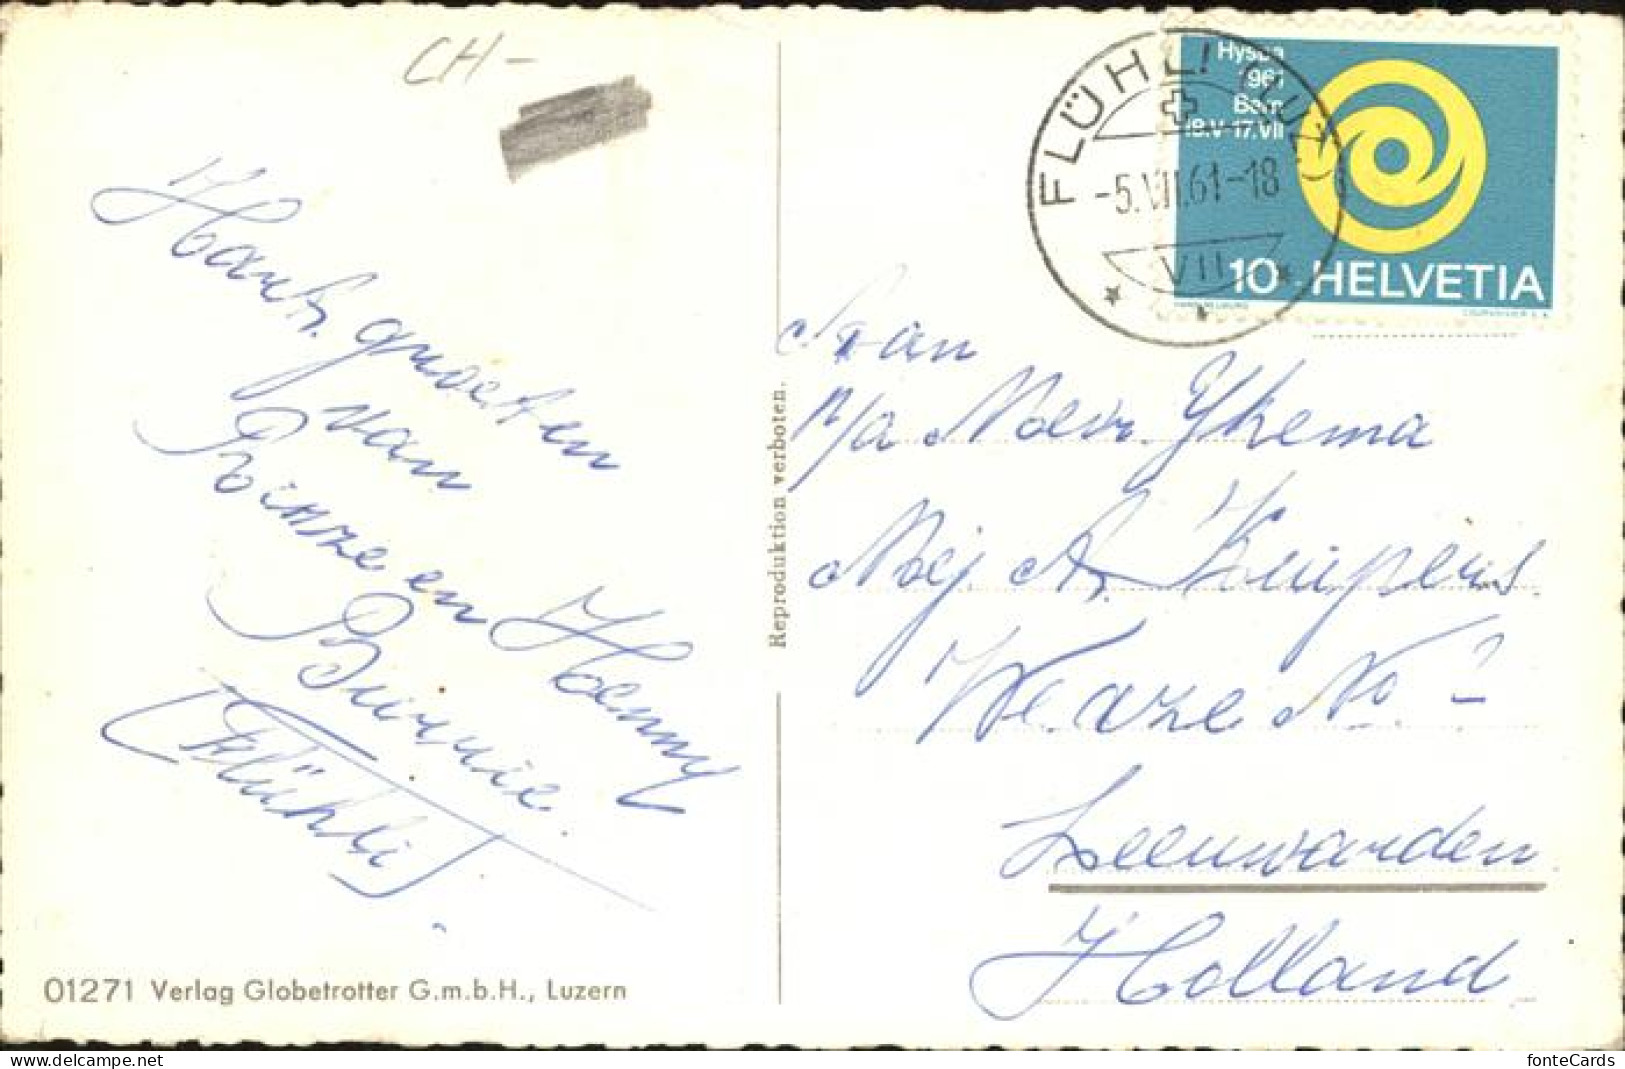 CH-
Hart. groeten
van
Rinze en Henny
(Flühli).
01271 Verlag Globetrotter G.m.b.H., Luzern
Reproduktion verboten.
FLÜHLI (LUZ.)
-5.VII.61-18
VII
Hyspa
1961
Bern
18.V-17.VII
10 HELVETIA
COURVOISIER S.A.
Aan
p/a Mevr. Ykema
Mej. A. Kuipers
Weaze No ?
Leeuwarden
Holland
delcampe.net
fonteCards